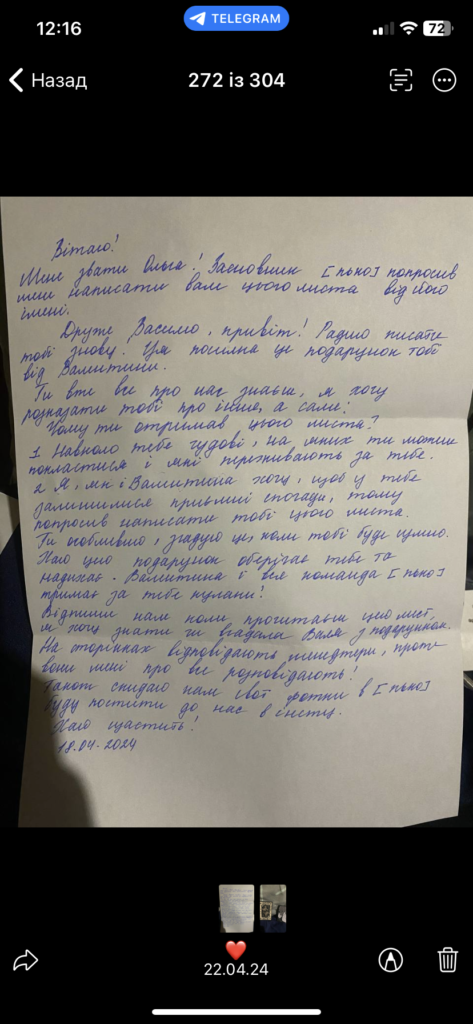 12:16
TELEGRAM
72
Назад
272 із 304
Вітаю!
Мене звати Ольга! Засновник [пько] попросив
мене написати вам цього листа від його
імені.
Друже Василю, привіт! Радию писати
тобі знову. Ця посилка це подарунок тобі
від Валитини.
Ти вже все про нас знаєш, я хочу
розказати тобі про інше, а саме:
Чому ти отримав цього листа?
1. Навколо тебе чудові, на яких ти можеш
покластися і які переживають за тебе.
2 Я, як і Валитина хочу, щоб у тебе
залишилися приємні спогади, тому
попросив написати тобі цього листа.
Ти особливий, згадуй це, коли тобі буде
Хай цей подарунок оберігає тебе та
надихає. Валитина і вся команда [пько]
тримає за тебе кулаки!
Відпиши нам коли прочитаєш цей лист,
я хочу знати чи вгадала Валя з подарунком.
На сторінках відповідають менеджери, проте
вони мені про все розповідають!
Також скидай нам свої фотки в [пько]
буду постити до нас в інсту.
Хай щастить!
18.04.2024
22.04.24